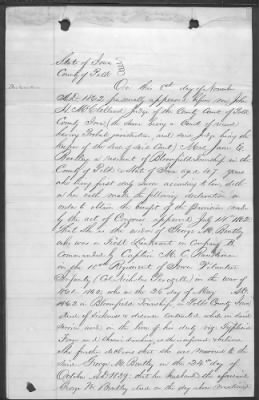 State of Iowa
County of Polk
Declaration
On this 8th day of November
A.D. 1862 personally appeared before me John
H. McClelland Judge of the County Court of Polk
County Iowa (the same being a Court of record
having Probate jurisdiction, and said Judge being the
keeper of the seal of said Court) Mrs Jane G.
Bentley a resident of Bloomfield Township in the
County of Polk & State of Iowa aged 47 years
who being first duly sworn according to law, doth
on her oath make the following declaration in
order to obtain the benefit of the provision made
by the act of Congress approved July 14th 1862
That she is the widow of George W. Bentley
who was a First Lieutenant in Company B
commanded by Captain M. C.
in the 10th Regiment of Iowa Volunteer
Infantry (Col. Nicholas Perczel) in the war of
1861-1862, who on the day of May A.D.
1862 in Bloomfield Township, in Polk County Iowa
died of sickness & disease contracted while in said
service and in the line of his duty viz: Typhoid
Fever and as she is informed & believes
She further declares that she was married to the
said George W. Bentley on the 24th day of
October A.D. 1839; that her husband the aforesaid
George W. Bentley died on the day above mentioned